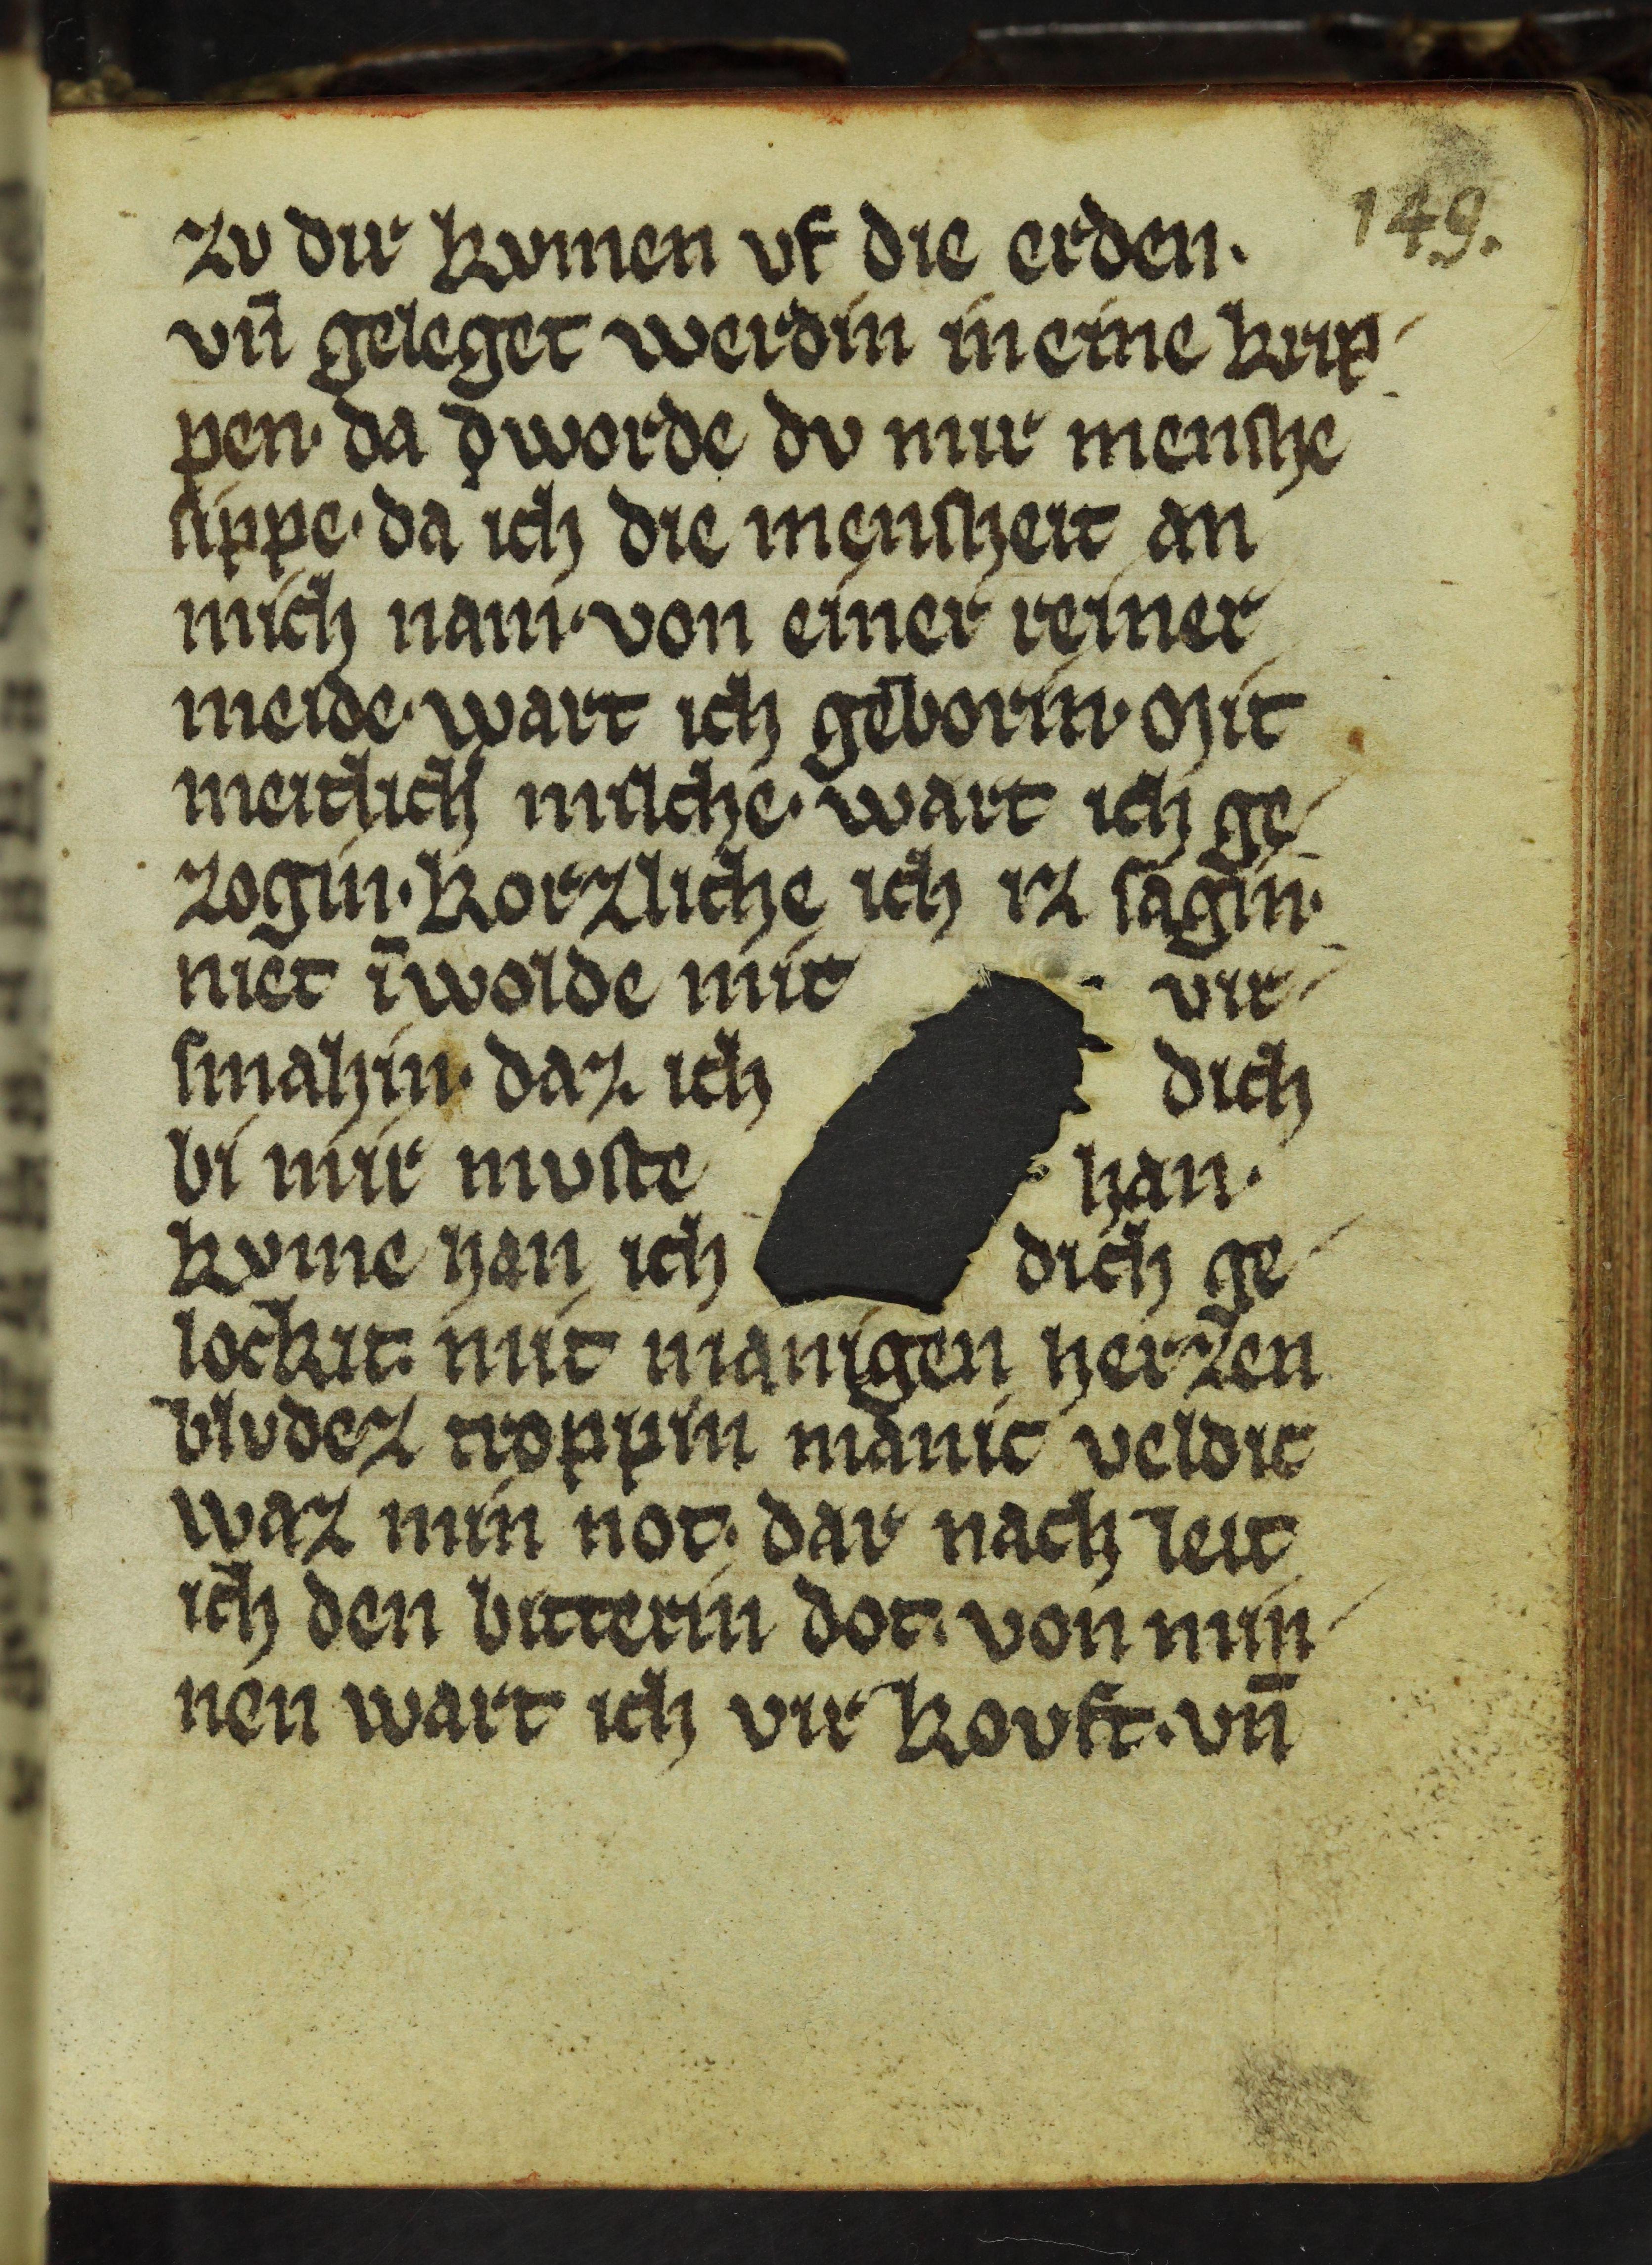 149.
zv dir kvmen vf die erden.
vn̄ geleget werdin in eine krip-
pen. da ꝺ̣worde dv mir mensche
sippe. da ich die menscheit an
mich nam. von einer reiner
meide. wart ich geborin. Mit
meitlich' milche. wart ich ge-
zogin. korzliche ich iz sagin.
niet īwolde mit vir-
smahin. daz ich dich
bi mir mvste han.
kvme han ich dich ge-
lockit. mit manigen herzen
blvdez troppin manicveldic
waz min not. dar nach leit
ich den bitterin dot. von min-
nen wart ich vir kovft. vn̄